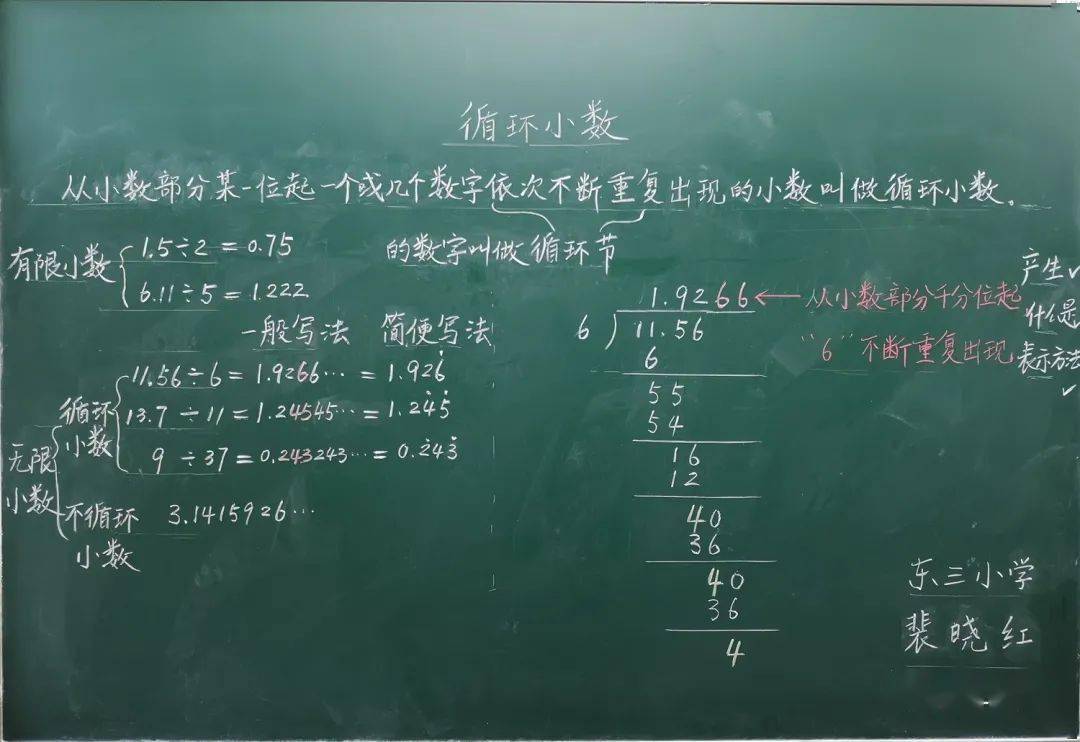 循环小数
从小数部分某一位起一个或几个数字依次不断重复出现的小数叫做循环小数。
的数字叫做循环节
有限小数
1.5÷2=0.75
6.11÷5=1.222
一般写法 简便写法
无限小数
循环小数
11.56÷6=1.9266…=1.926̇
13.7÷11=1.24545…=1.24̇5̇
9÷37=0.243243…=0.2̇43̇
不循环小数
3.1415926…
1.9266←从小数部分千分位起
6)11.56
"6"不断重复出现
6
55
54
16
12
40
36
40
36
4
产生✓
什么是
表示方法✓
东三小学
裴晓红